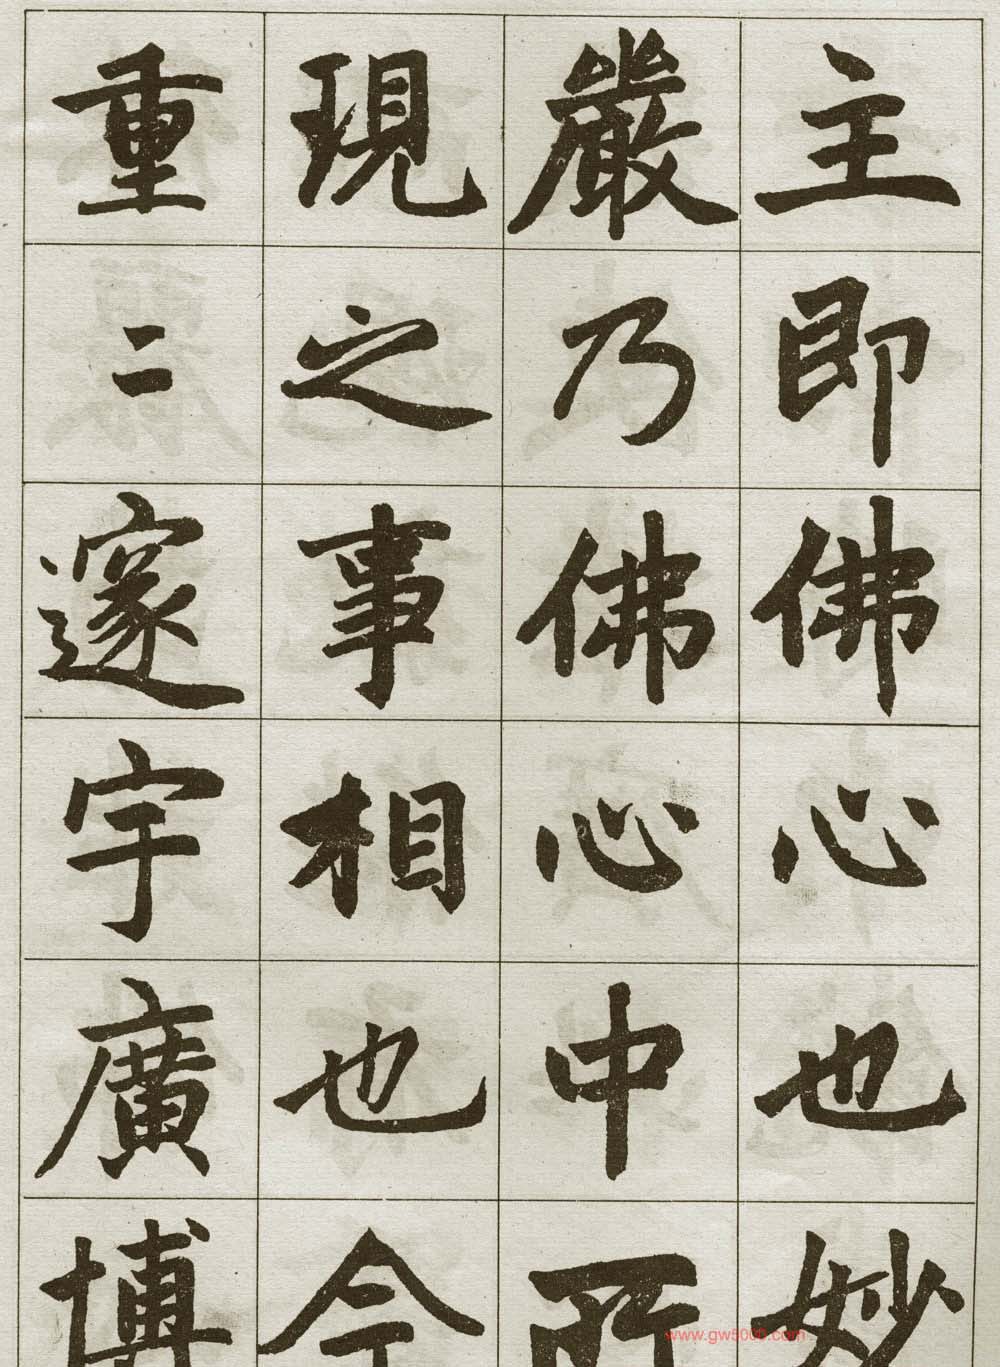 主即佛心也妙
嚴乃佛心中所
現之事相也今
重二邃宇廣博
www.gw5000.com